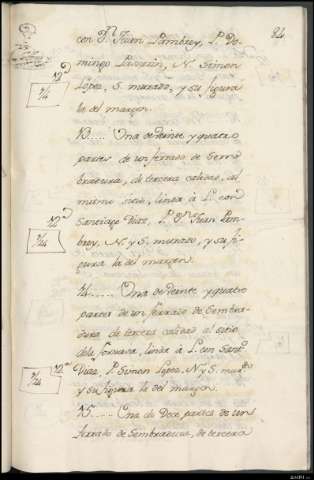 84
con Dn. Juan Lambrey, P. Do-
mingo Lavrin, N. Simon
Lopez, S. murado, y su figura
la del margen.
13..... Una de veinte y quatro
partes de un ferrado de Sem-
bradura, de tercera calidad, al
mismo sitio, linda à L. con
Santiago Vidal, P. Dn. Juan Lam-
brey, N. y S. murado, y su fi-
gura la del margen.
14..... Una de veinte y quatro
partes de un ferrado de Sembra-
dura de tercera calidad al sitio
dela, linda à L. con Santgo.
Vidal, P. Simon Lopez, N. y S. murdo.
y su figura la del margen.
15.... Una de Doce partes de un
ferrado de Sembradura, de tercera